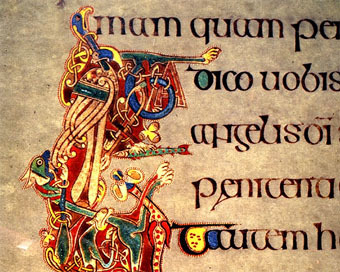 mam quam per
dico uobis
angelis dī s
penitentia
autem h